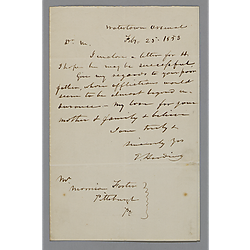 Watertown Arsenal
Feby. 25th 1853
Dr M.
I enclose a letter for H.
I hope he may be successful.
Give my regards to your poor
father, whose affliction would
seem to be almost beyond en-
durance - my love for your
mother & family & believe
I am truly &
Sincerely yrs
E Harding
Mr
Morrison Foster
Pittsburgh
Pa